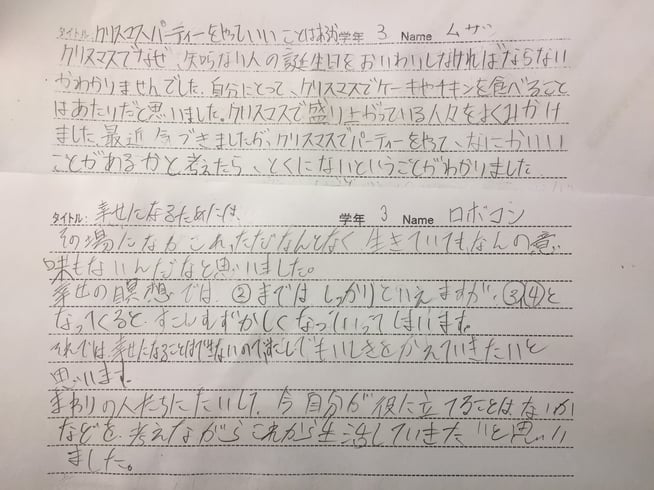 タイトル: クリスマスパーティーをやっていいことはあるか 学年 3 Name ムサシ
クリスマスでなぜ、知らない人の誕生日をおいわいしなければならない
かわかりませんでした。自分にとって、クリスマスでケーキやチキンを食べること
はあたりだと思いました。クリスマスで盛り上がっている人々をよくみかけ
ました。最近気づきましたが、クリスマスでパーティーをやって、なにかいい
ことがあるかと考えたら、とくにないということがわかりました
タイトル: 幸せになるためには、 学年 3 Name ロボコン
その場にながされ、ただなんとなく生きていても、なんの意
味もないんだなと思いました。
幸せの瞑想では、②まではしっかりといえますが、③④と
なってくると、すこしむずかしくなっていってしまいます。
それでは、幸せになることはできないので、すこしでもいしきをかえていきたいと
思います。
まわりの人たちにたいして、今自分が役に立てることはないか
などを、考えながらこれから生活していきたいと思い
ました。